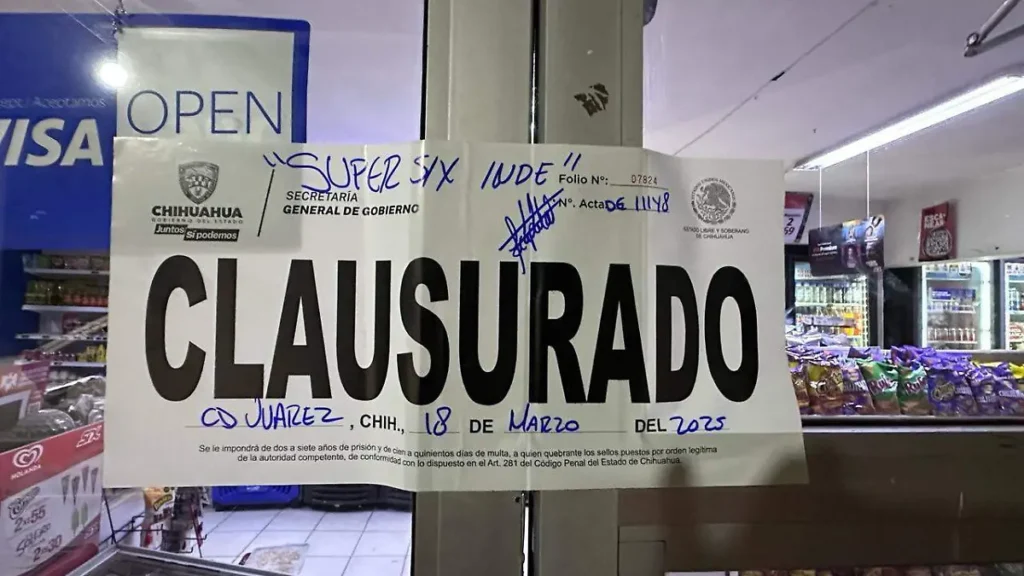 Aceptamos
VISA
OPEN
"SUPER SIX INDE"
Folio Nº: 07824
SECRETARÍA
GENERAL DE GOBIERNO
Nº. Acta DE 11148
CHIHUAHUA
GOBIERNO DEL ESTADO
Juntos Sí podemos
ESTADO LIBRE Y SOBERANO
DE CHIHUAHUA
CLAUSURADO
CD JUAREZ, CHIH., 18 DE MARZO DEL 2025
Se le impondrá de dos a siete años de prisión y de cien a quinientos días de multa, a quien quebrante los sellos puestos por orden legítima
de la autoridad competente, de conformidad con lo dispuesto en el Art. 281 del Código Penal del Estado de Chihuahua.
HOLANDA
2x55
2x30